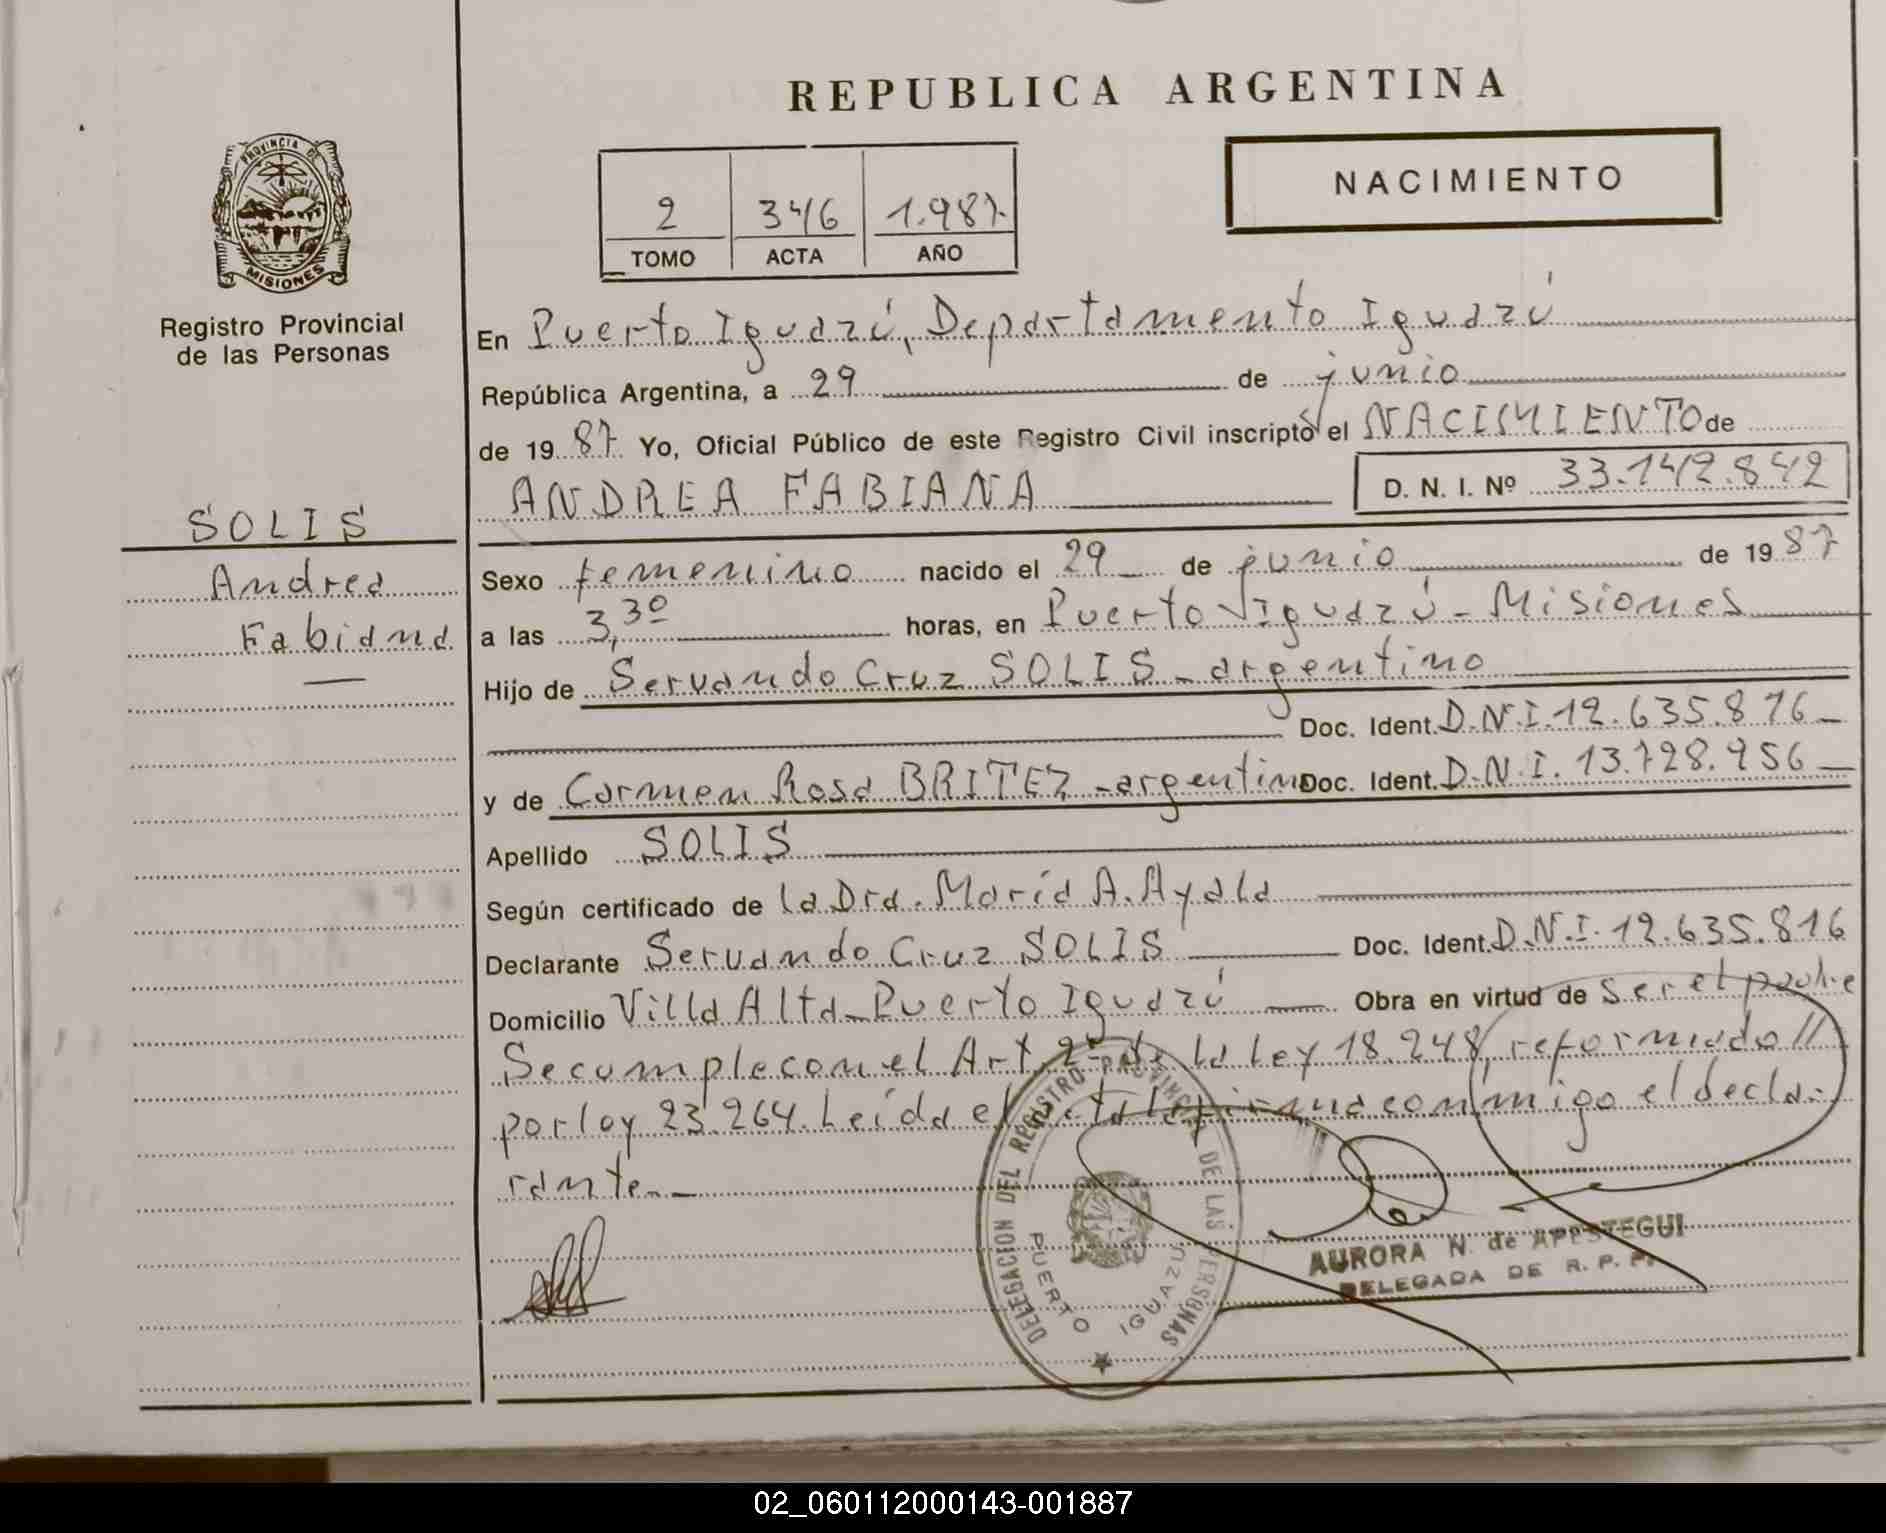 REPUBLICA ARGENTINA
NACIMIENTO
2 346 1.987.
TOMO ACTA AÑO
PROVINCIA DE
MISIONES
Registro Provincial
de las Personas
SOLIS
Andrea
Fabiana
En Puerto Iguazú, Departamento Iguazú
República Argentina, a 29 de junio
de 1987. Yo, Oficial Público de este Registro Civil inscripto el NACIMIENTO de
ANDREA FABIANA D. N. I. Nº 33.142.842
Sexo femenino nacido el 29 de junio de 1987
a las 3,30 horas, en Puerto Iguazú - Misiones
Hijo de Servando Cruz SOLIS - argentino
Doc. Ident. D.N.I. 12.635.816 -
y de Carmen Rosa BRITEZ - argentina Doc. Ident. D.N.I. 13.728.956 -
Apellido SOLIS
Según certificado de la Dra. María A. Ayala
Declarante Servando Cruz SOLIS Doc. Ident. D.N.I. 12.635.816
Domicilio Villa Alta - Puerto Iguazú Obra en virtud de ser el padre
Se cumple con el Art. 2º de la Ley 18.248, reformado //
por ley 23.264. Leída el acta la firma conmigo el decla-
rante. -
DELEGACION DEL REGISTRO PROVINCIAL DE LAS PERSONAS
PUERTO IGUAZU
AURORA N. de APESTEGUI
DELEGADA DE R. P. P.
02_060112000143-001887